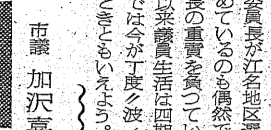 委員長が江名地区選
めているのも偶然で
長の重責を負つてい
以来議員生活は四期
では今が丁度〃波〃
ときともいえよう。
市議 加沢嘉